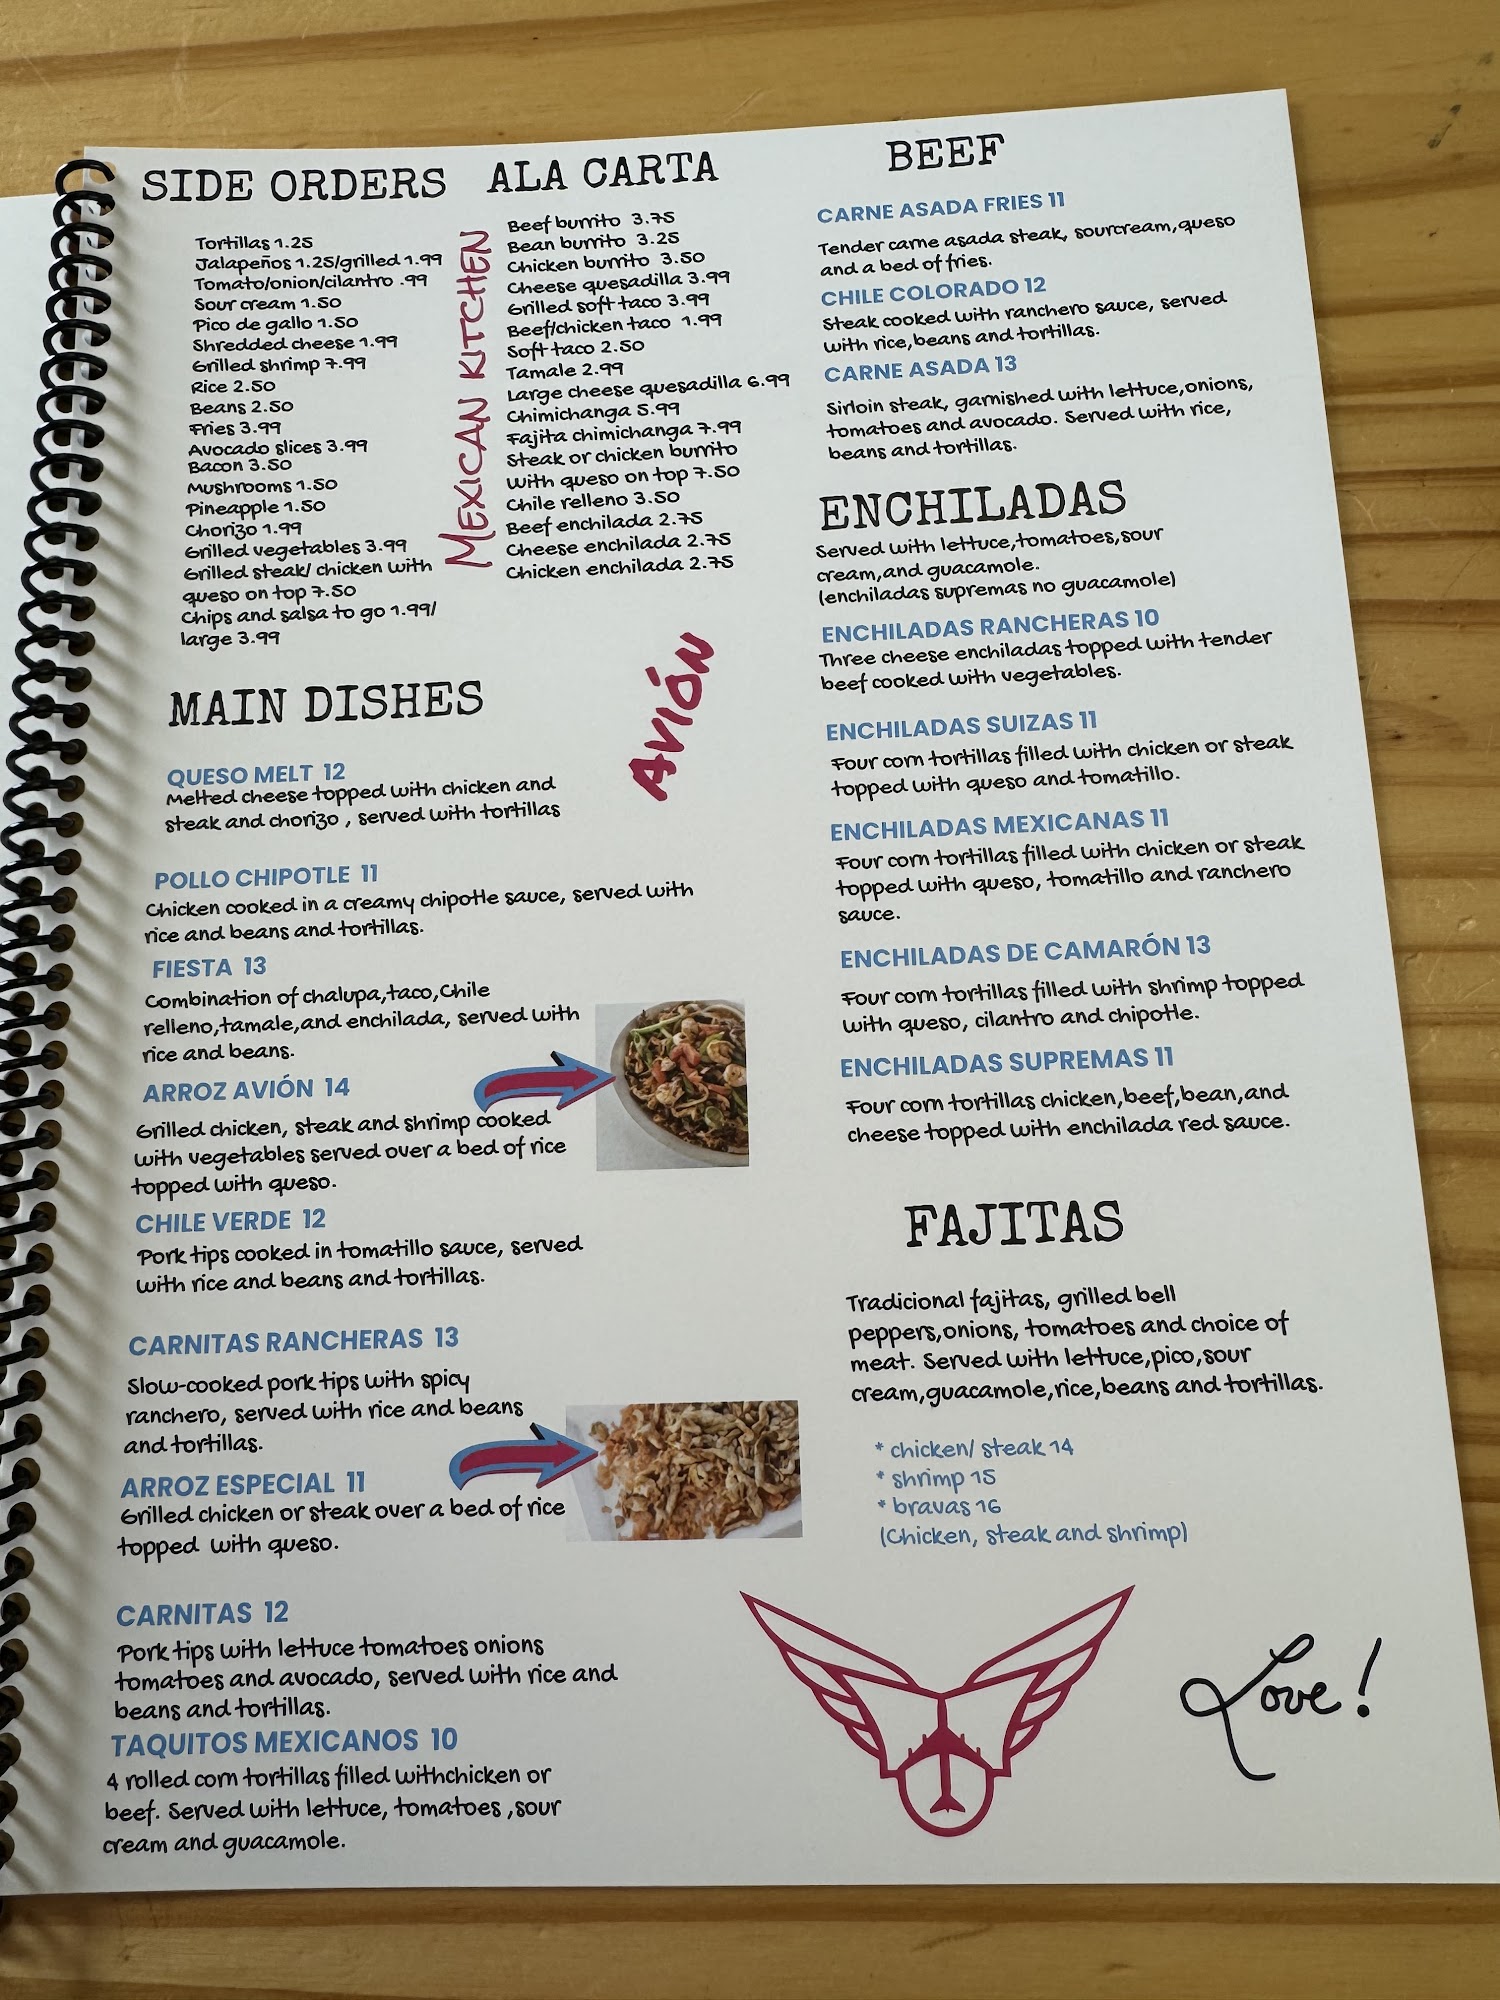 SIDE ORDERS
Tortillas 1.25
Jalapeños 1.25/grilled 1.99
Tomato/onion/cilantro .99
Sour cream 1.50
Pico de gallo 1.50
Shredded cheese 1.99
Grilled shrimp 7.99
Rice 2.50
Beans 2.50
Fries 3.99
Avocado slices 3.99
Bacon 3.50
Mushrooms 1.50
Pineapple 1.50
Chorizo 1.99
Grilled vegetables 3.99
Grilled steak/ chicken with
queso on top 7.50
Chips and salsa to go 1.99/
large 3.99
MEXICAN KITCHEN
ALA CARTA
Beef burrito 3.75
Bean burrito 3.25
Chicken burrito 3.50
Cheese quesadilla 3.99
Grilled soft taco 3.99
Beef/chicken taco 1.99
Soft taco 2.50
Tamale 2.99
Large cheese quesadilla 6.99
Chimichanga 5.99
Fajita chimichanga 7.99
Steak or chicken burrito
with queso on top 7.50
Chile relleno 3.50
Beef enchilada 2.75
Cheese enchilada 2.75
Chicken enchilada 2.75
AVIÓN
MAIN DISHES
QUESO MELT 12
Melted cheese topped with chicken and
steak and chorizo , served with tortillas
POLLO CHIPOTLE 11
Chicken cooked in a creamy chipotle sauce, served with
rice and beans and tortillas.
FIESTA 13
Combination of chalupa,taco,Chile
relleno,tamale,and enchilada, served with
rice and beans.
ARROZ AVIÓN 14
Grilled chicken, steak and shrimp cooked
with vegetables served over a bed of rice
topped with queso.
CHILE VERDE 12
Pork tips cooked in tomatillo sauce, served
with rice and beans and tortillas.
CARNITAS RANCHERAS 13
Slow-cooked pork tips with spicy
ranchero, served with rice and beans
and tortillas.
ARROZ ESPECIAL 11
Grilled chicken or steak over a bed of rice
topped with queso.
CARNITAS 12
Pork tips with lettuce tomatoes onions
tomatoes and avocado, served with rice and
beans and tortillas.
TAQUITOS MEXICANOS 10
4 rolled corn tortillas filled withchicken or
beef. Served with lettuce, tomatoes ,sour
cream and guacamole.
BEEF
CARNE ASADA FRIES 11
Tender carne asada steak, sourcream,queso
and a bed of fries.
CHILE COLORADO 12
Steak cooked with ranchero sauce, served
with rice,beans and tortillas.
CARNE ASADA 13
Sirloin steak, garnished with lettuce,onions,
tomatoes and avocado. Served with rice,
beans and tortillas.
ENCHILADAS
Served with lettuce,tomatoes,sour
cream,and guacamole.
(enchiladas supremas no guacamole)
ENCHILADAS RANCHERAS 10
Three cheese enchiladas topped with tender
beef cooked with vegetables.
ENCHILADAS SUIZAS 11
Four corn tortillas filled with chicken or steak
topped with queso and tomatillo.
ENCHILADAS MEXICANAS 11
Four corn tortillas filled with chicken or steak
topped with queso, tomatillo and ranchero
sauce.
ENCHILADAS DE CAMARÓN 13
Four corn tortillas filled with shrimp topped
with queso, cilantro and chipotle.
ENCHILADAS SUPREMAS 11
Four corn tortillas chicken,beef,bean,and
cheese topped with enchilada red sauce.
FAJITAS
Tradicional fajitas, grilled bell
peppers,onions, tomatoes and choice of
meat. Served with lettuce,pico,sour
cream,guacamole,rice,beans and tortillas.
* chicken/ steak 14
* shrimp 15
* bravas 16
(Chicken, steak and shrimp)
Love!